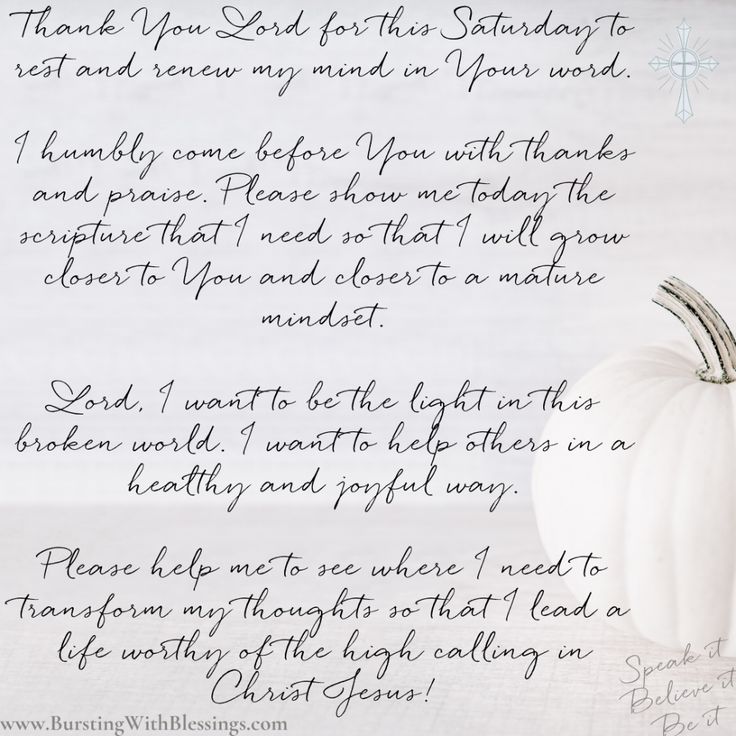 Thank You Lord for this Saturday to
rest and renew my mind in Your word.
I humbly come before You with thanks
and praise. Please show me today the
scripture that I need so that I will grow
closer to You and closer to a mature
mindset.
Lord, I want to be the light in this
broken world. I want to help others in a
healthy and joyful way.
Please help me to see where I need to
transform my thoughts so that I lead a
life worthy of the high calling in
Christ Jesus!
Speak it
Believe it
Be it
www.BurstingWithBlessings.com